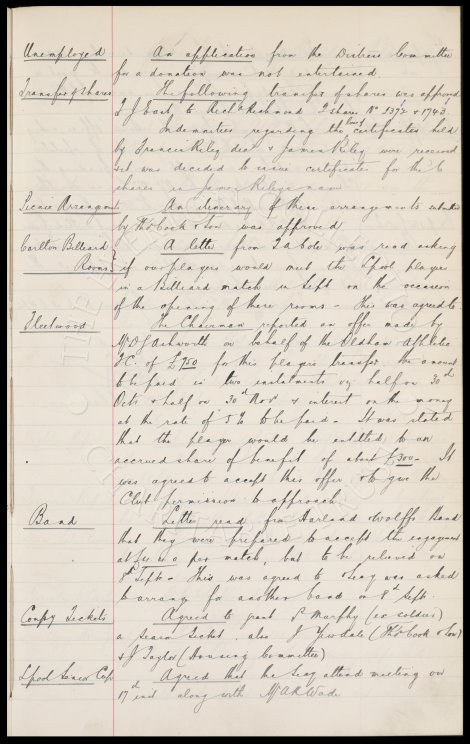 Unemployed An application from the Distress Committee
for a donation was not entertained.
Transfer of Shares The following transfer of shares was approved
T J East to Richd Richmond 2 shares Nos 1372 & 1743.
Indemnities regarding the lost certificates held
by Francis Riley decd & James Riley were received
& it was decided to issue certificates for the 6
shares in James Rileys name
Arrangements An itinerary of these arrangements submitted
by Thos Cook & Son was approved
Carlton Billiard A letter from was read asking
Rooms if our players would meet the Lpool players
in a Billiard match in Sept on the occasion
of the opening of these rooms - This was agreed to
Fleetwood The Chairman reported an offer made by
Mr D Ashworth on behalf of the Oldham Athletic
F.C. of £750 for this players transfer, the amount
to be paid in two instalments viz half on 30th
Octr & half on 30th Novr & interest on the money
at the rate of 5% to be paid - It was stated
that the player would be entitled to an
accrued share of benefit of about £300 - It
was agreed to accept this offer & to give the
Club permission to approach.
Band Letter read from Harland & Wolffs Band
that they were prepared to accept the engagement
at per match, but to be relieved on
8th Sept - This was agreed to & Secy was asked
to arrange for another band on 8th Sept.
Compy Tickets Agreed to grant P Murphy (ex soldier)
a season ticket, also J Yewdale (Thos Cook & Son)
& J Taylor (Housing Committee)
Lpool Senior Cup Agreed that the Secy attend meeting on
17th inst along with Mr A R Wade